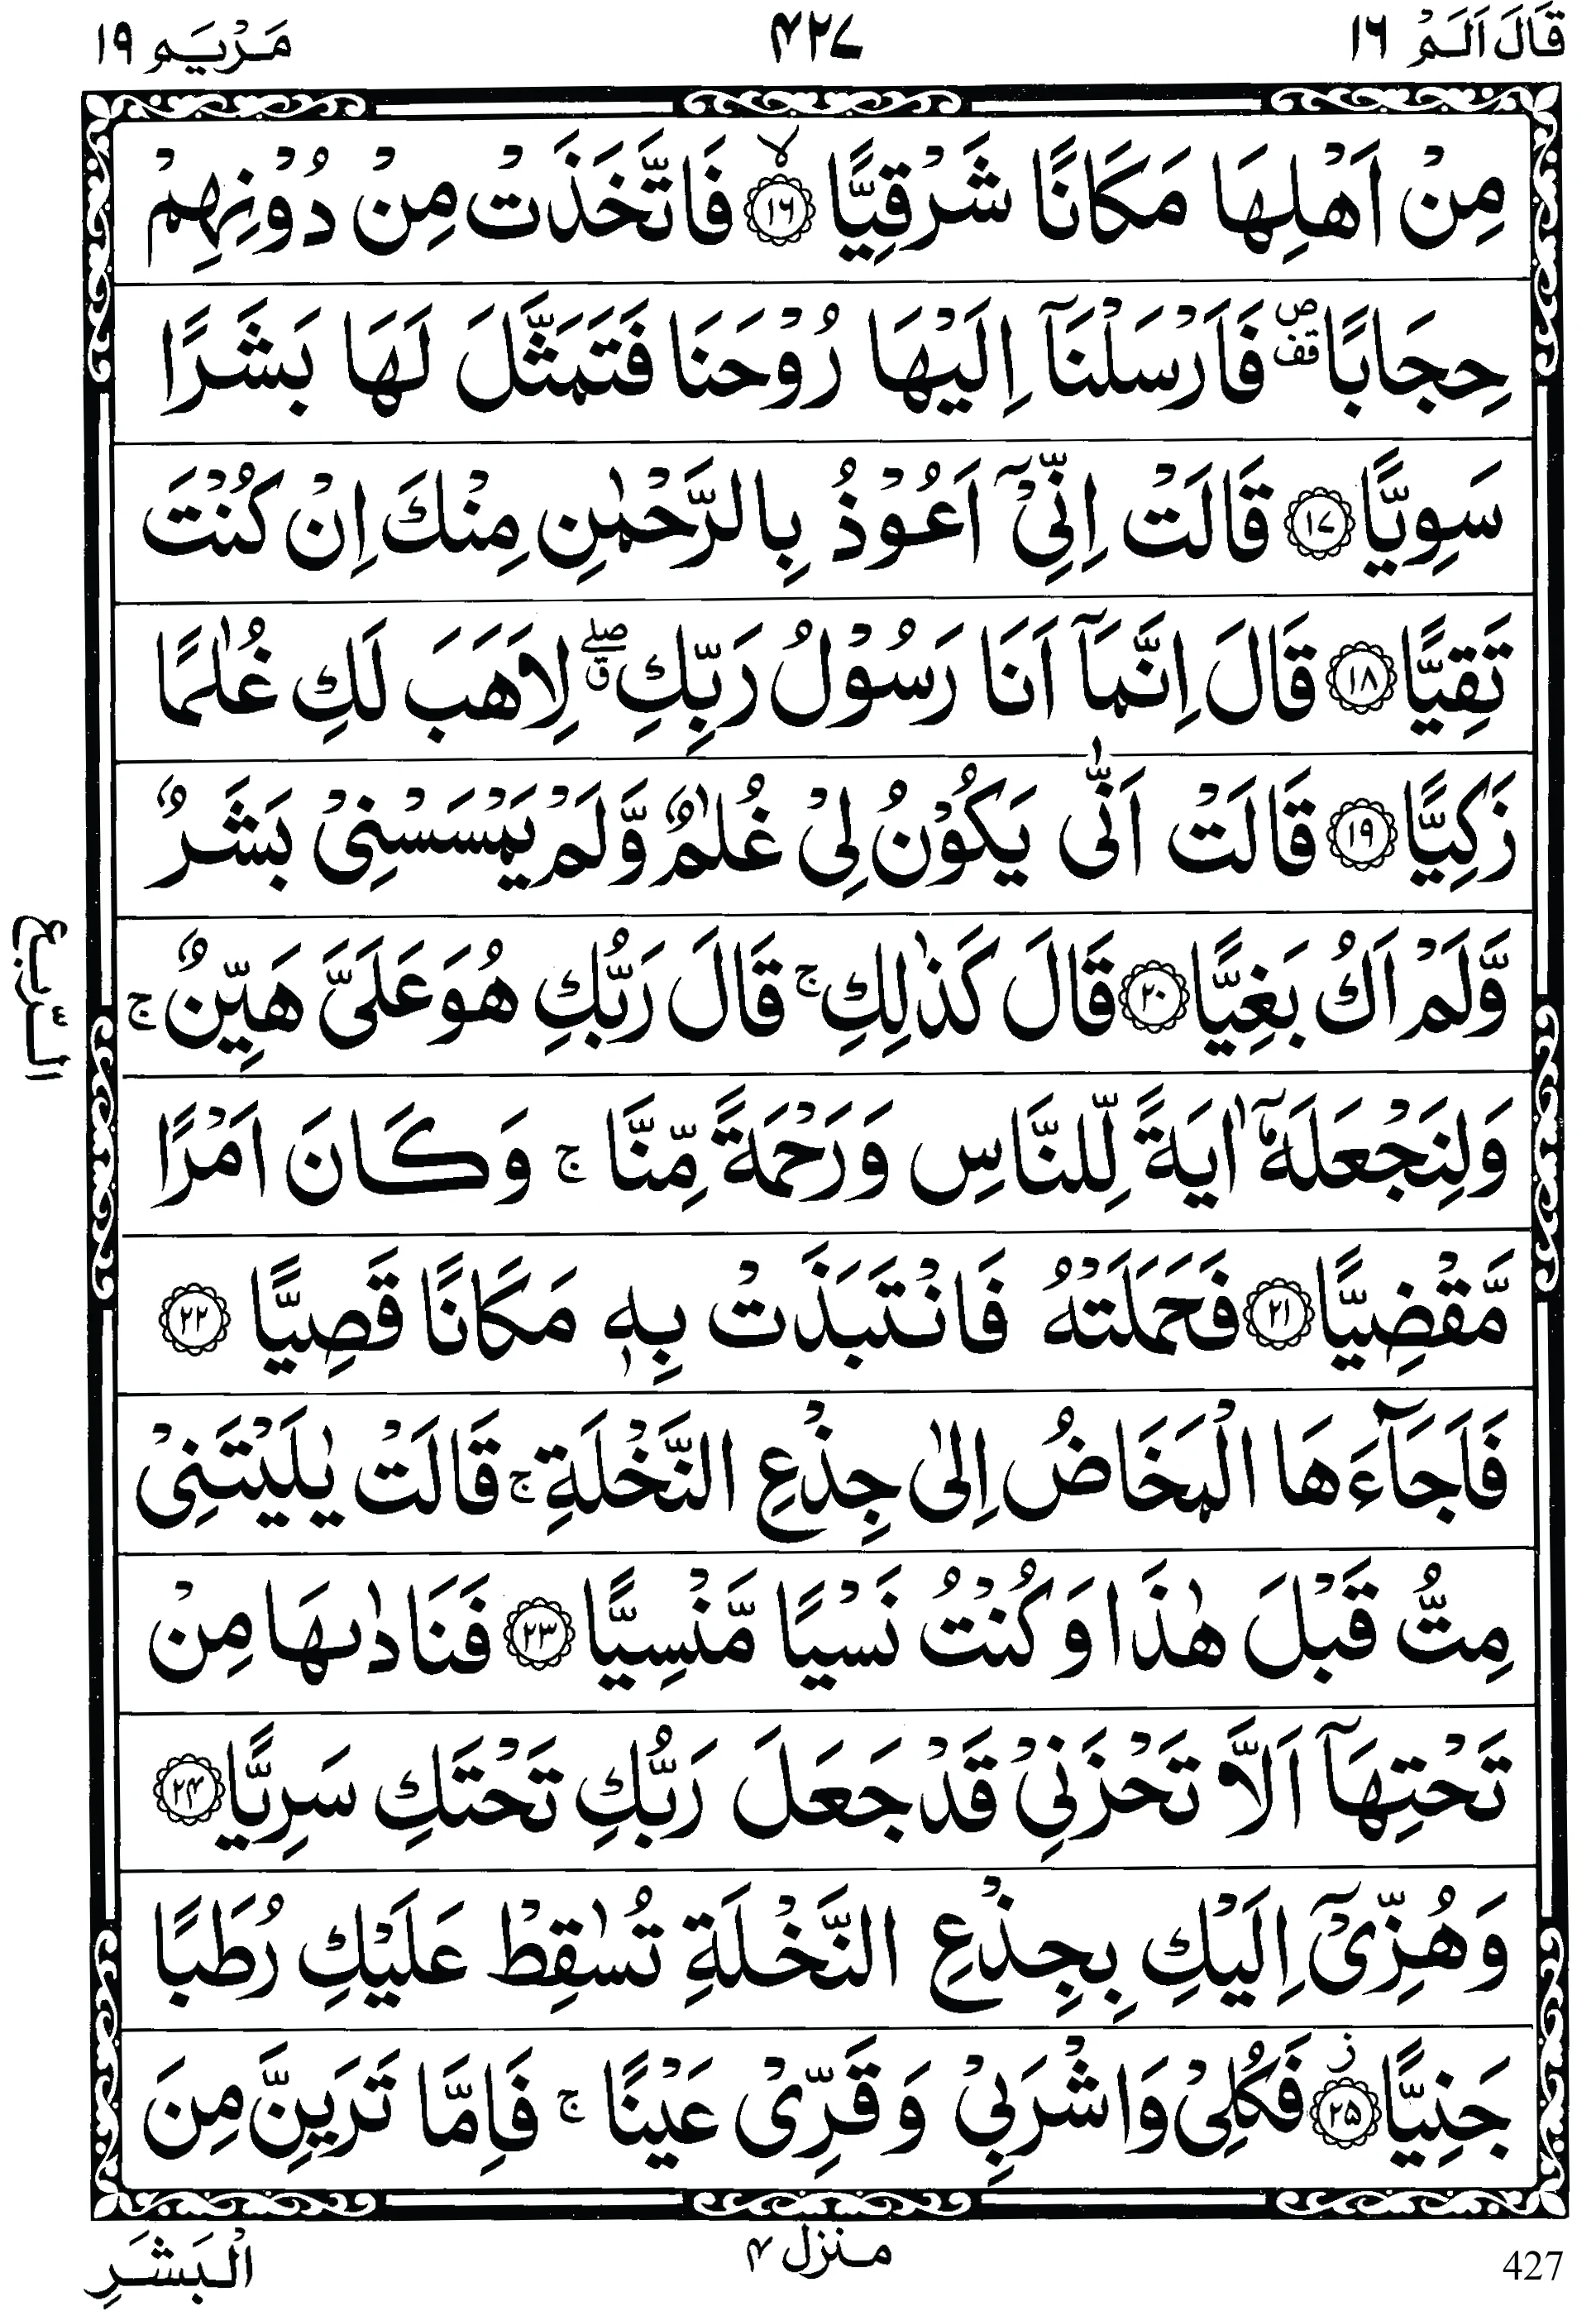 قَالَ اَلَمْ ١٦ ۴۲۷ مَرْيَم ١٩
مِنْ اَهْلِهَا مَكَانًا شَرْقِيًّا ۙ﴿١٦﴾ فَاتَّخَذَتْ مِنْ دُوْنِهِمْ
حِجَابًا ۪ قف فَاَرْسَلْنَاۤ اِلَيْهَا رُوْحَنَا فَتَمَثَّلَ لَهَا بَشَرًا
سَوِيًّا ﴿١٧﴾ قَالَتْ اِنِّيْۤ اَعُوْذُ بِالرَّحْمٰنِ مِنْكَ اِنْ كُنْتَ
تَقِيًّا ﴿١٨﴾ قَالَ اِنَّمَاۤ اَنَا رَسُوْلُ رَبِّكِ ۖق لِاَهَبَ لَكِ غُلٰمًا
زَكِيًّا ﴿١٩﴾ قَالَتْ اَنّٰى يَكُوْنُ لِيْ غُلٰمٌ وَّلَمْ يَمْسَسْنِيْ بَشَرٌ
وَّلَمْ اَكُ بَغِيًّا ﴿٢٠﴾ قَالَ كَذٰلِكِ ۚ قَالَ رَبُّكِ هُوَ عَلَيَّ هَيِّنٌ ۚ
الرّبع
وَلِنَجْعَلَهٗۤ اٰيَةً لِّلنَّاسِ وَرَحْمَةً مِّنَّا ۚ وَكَانَ اَمْرًا
مَّقْضِيًّا ﴿٢١﴾ فَحَمَلَتْهُ فَانْتَبَذَتْ بِهٖ مَكَانًا قَصِيًّا ﴿٢٢﴾
فَاَجَآءَهَا الْمَخَاضُ اِلٰى جِذْعِ النَّخْلَةِ ۚ قَالَتْ يٰلَيْتَنِيْ
مِتُّ قَبْلَ هٰذَا وَكُنْتُ نَسْيًا مَّنْسِيًّا ﴿٢٣﴾ فَنَادٰىهَا مِنْ
تَحْتِهَاۤ اَلَّا تَحْزَنِيْ قَدْ جَعَلَ رَبُّكِ تَحْتَكِ سَرِيًّا ﴿۲۴﴾
وَهُزِّيْۤ اِلَيْكِ بِجِذْعِ النَّخْلَةِ تُسٰقِطْ عَلَيْكِ رُطَبًا
جَنِيًّا ؗ﴿۲۵﴾ فَكُلِيْ وَاشْرَبِيْ وَقَرِّيْ عَيْنًا ۚ فَاِمَّا تَرَيِنَّ مِنَ
427 منزل ۴ الْبَشَرِ